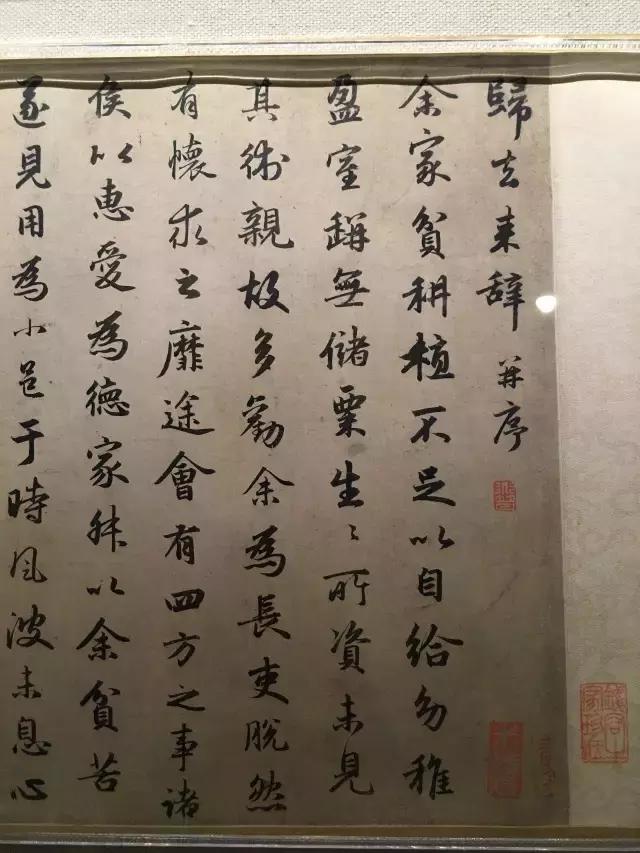 歸去来辭 并序
余家貧耕植不足以自給幼稚
盈室缾無儲粟生〻所資未見
其術親故多勸余為長吏脫然
有懷求之靡途會有四方之事諸
侯以惠愛為德家叔以余貧苦
遂見用為小邑于時風波未息心